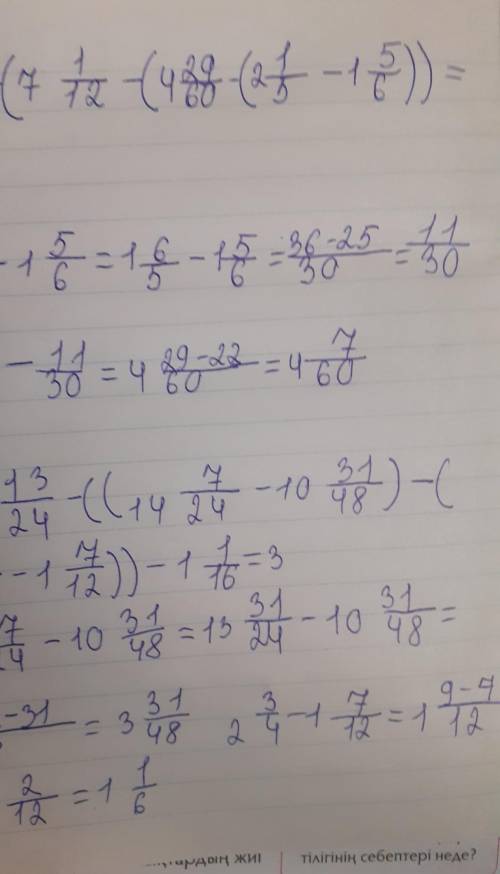 (7 1/12 - (4 29/60 - (2 1/5 - 1 5/6)) =
- 1 5/6 = 1 6/5 - 1 5/6 = 36-25/30 = 11/30
- 11/30 = 4 29-22/60 = 4 7/60
13/24 - ((14 7/24 - 10 31/48) - (
- 1 7/12)) - 1 1/16 = 3
7/4 - 10 31/48 = 13 31/24 - 10 31/48 =
-31 = 3 31/48 2 3/4 - 1 7/12 = 1 9-7/12
2/12 = 1 1/6
тардың жиі тілігінің себептері неде?